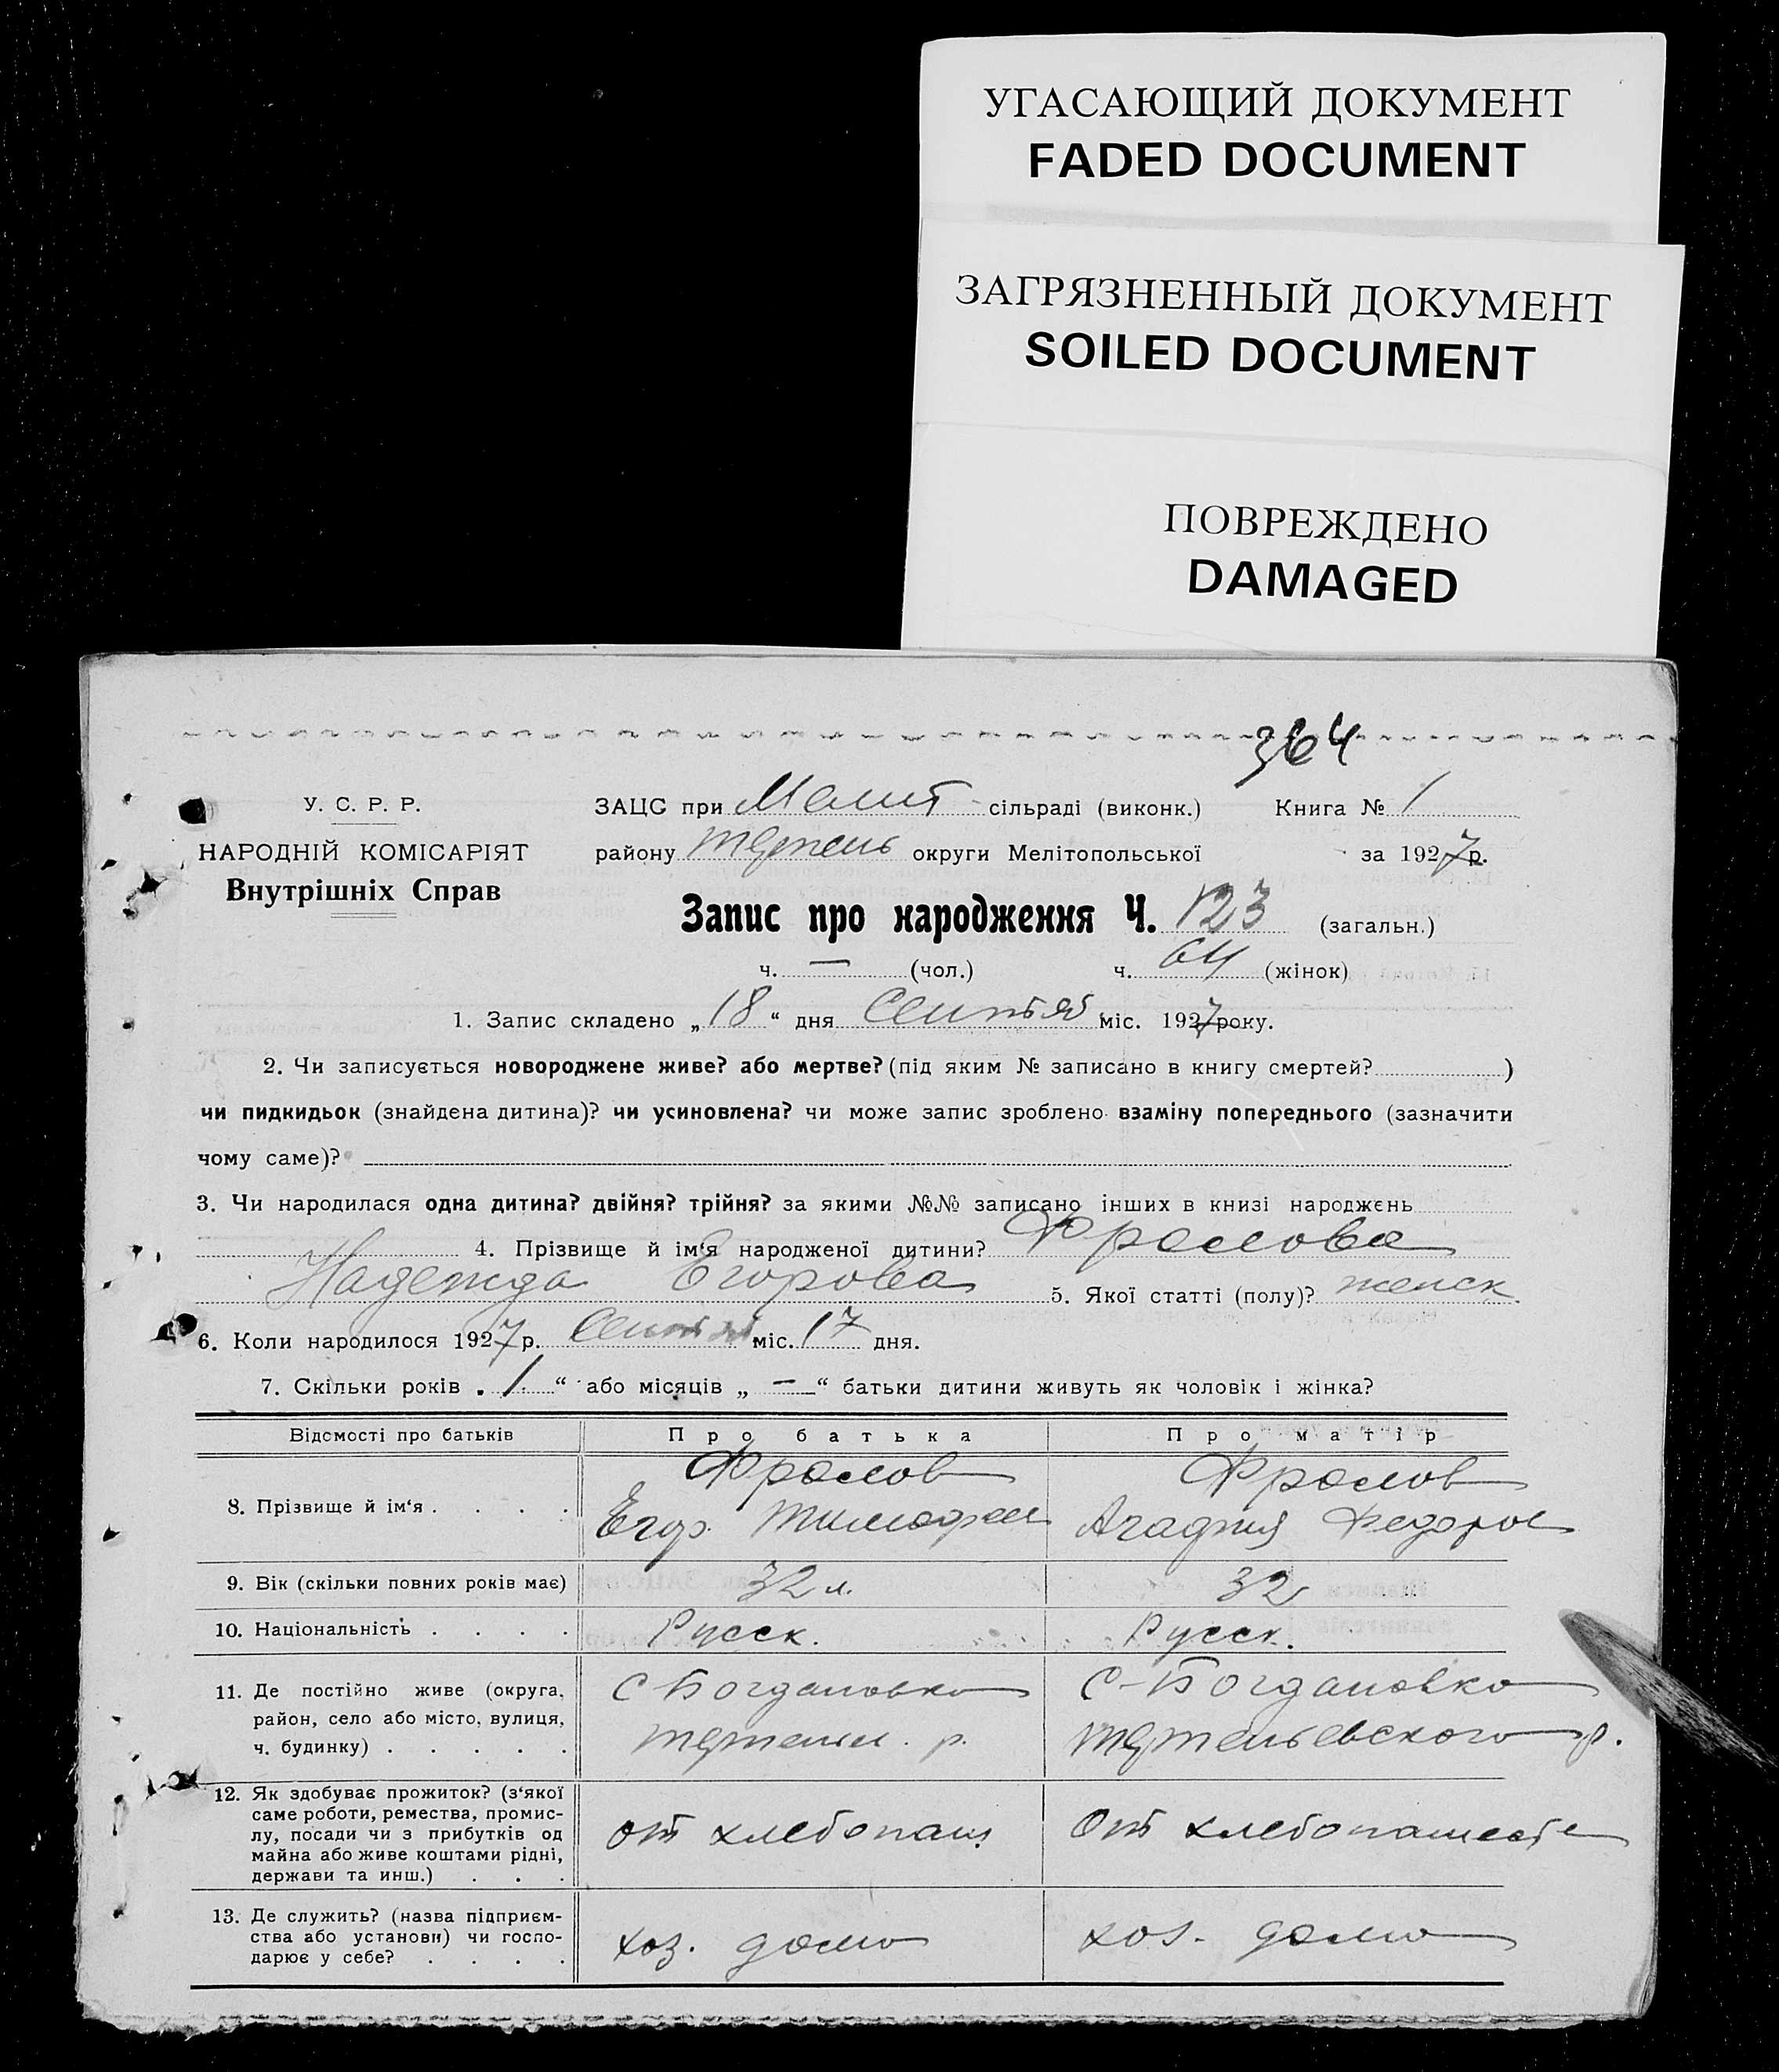 УГАСАЮЩИЙ ДОКУМЕНТ
FADED DOCUMENT
ЗАГРЯЗНЕННЫЙ ДОКУМЕНТ
SOILED DOCUMENT
ПОВРЕЖДЕНО
DAMAGED
364
У. С. Р. Р.
НАРОДНІЙ КОМІСАРІЯТ
Внутрішніх Справ
ЗАЦС при сільраді (виконк.) Книга № 1
району округи Мелітопольської за 1927 р.
Запис про народження Ч. 123 (загальн.)
ч. — (чол.) ч. 64 (жінок)
1. Запис складено „18“ дня міс. 1927 року.
2. Чи записується новороджене живе? або мертве? (під яким № записано в книгу смертей? )
чи пидкидьок (знайдена дитина)? чи усиновлена? чи може запис зроблено взаміну попереднього (зазначити
чому саме)?
3. Чи народилася одна дитина? двійня? трійня? за якими №№ записано інших в книзі народжєнь
4. Прізвище й ім'я народженої дитини? Фролова
Надежда Егорова 5. Якої статті (полу)? женск
6. Коли народилося 1927 р. міс. 17 дня.
7. Скільки років „ 1 “ або місяців „ — “ батьки дитини живуть як чоловік і жінка?
Відомості про батьків Про батька Про матір
8. Прізвище й ім'я . . . . Фролов Фролов
Егор Тимофее Федоров
9. Вік (скільки повних років має) 32 л. 32
10. Національність . . . . Русск. Русск.
11. Де постійно живе (округа, С Богдановка С-Богдановка
район, село або місто, вулиця,
ч. будинку) . . . . . р. р.
12. Як здобуває прожиток? (з'якої
саме роботи, ремества, промис-
лу, посади чи з прибутків од от хлебопаш От хлебопашеств
майна або живе коштами рідні,
держави та инш.) . . .
13. Де служить? (назва підприєм-
ства або установи) чи госпо- хоз. дома хоз. дома
дарює у себе? . . . .